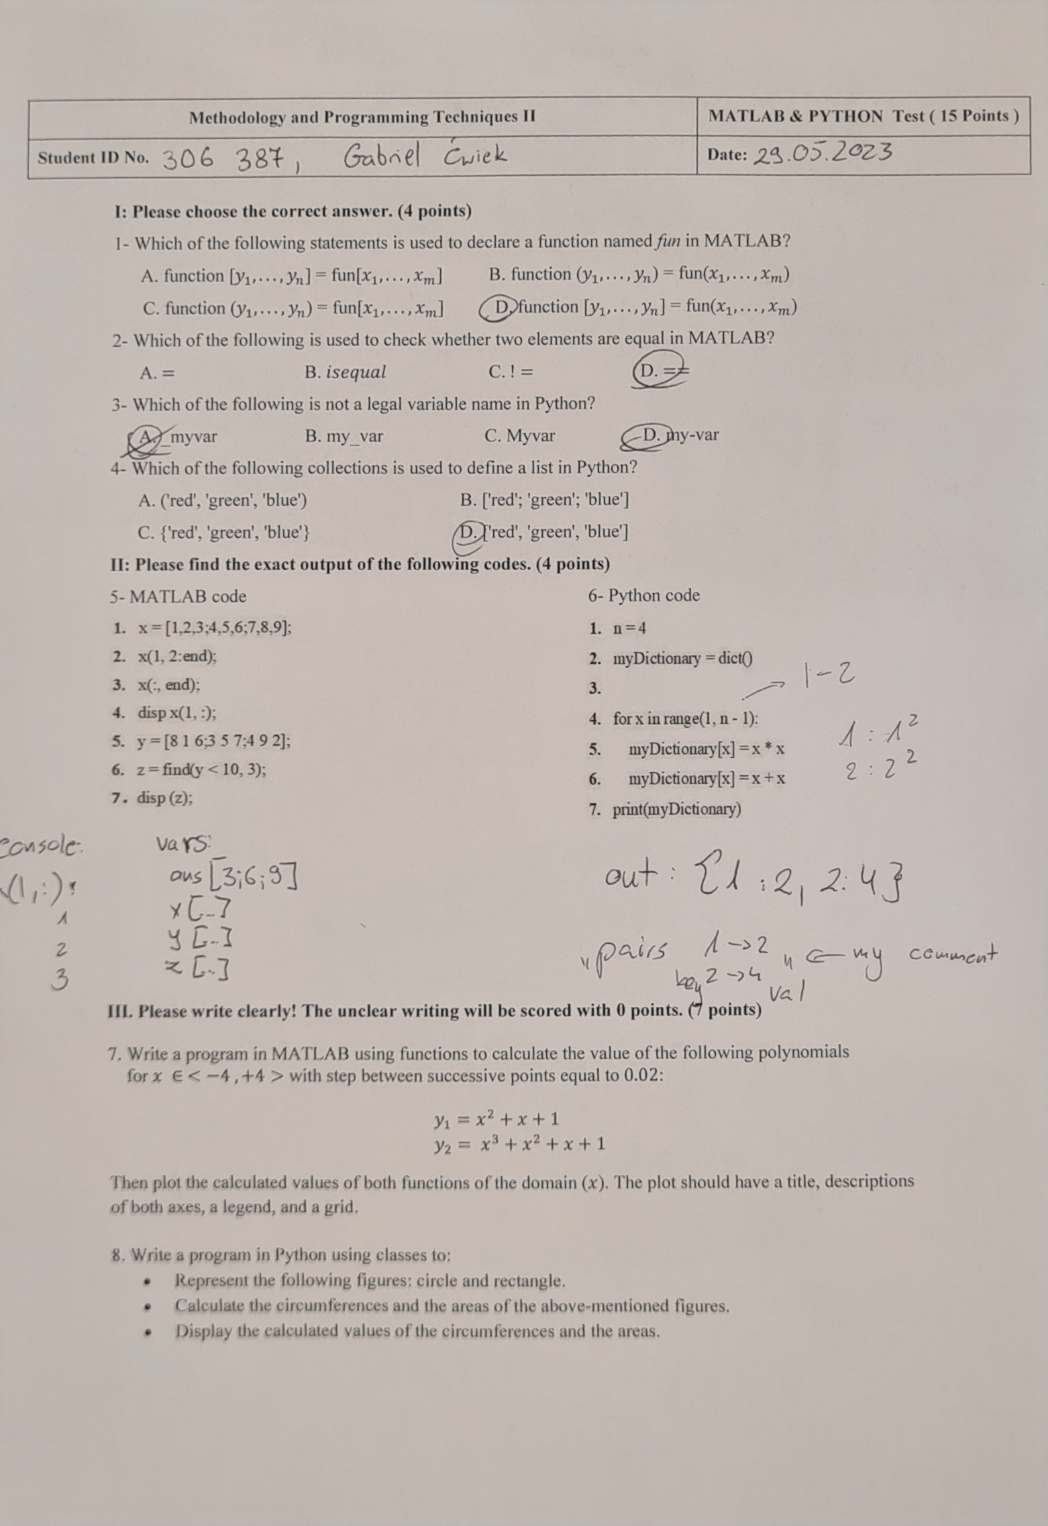 Methodology and Programming Techniques II
MATLAB & PYTHON Test ( 15 Points )
Student ID No. 306 387, Gabriel Ćwiek
Date: 29.05.2023
I: Please choose the correct answer. (4 points)
1- Which of the following statements is used to declare a function named fun in MATLAB?
A. function [y₁,…,yₙ] = fun[x₁,…,xₘ] B. function (y₁,…,yₙ) = fun(x₁,…,xₘ)
C. function (y₁,…,yₙ) = fun[x₁,…,xₘ] D. function [y₁,…,yₙ] = fun(x₁,…,xₘ)
2- Which of the following is used to check whether two elements are equal in MATLAB?
A. = B. isequal C. ! = D. ==
3- Which of the following is not a legal variable name in Python?
A. _myvar B. my_var C. Myvar D. my-var
4- Which of the following collections is used to define a list in Python?
A. ('red', 'green', 'blue') B. ['red'; 'green'; 'blue']
C. {'red', 'green', 'blue'} D. ['red', 'green', 'blue']
II: Please find the exact output of the following codes. (4 points)
5- MATLAB code
1. x = [1,2,3;4,5,6;7,8,9];
2. x(1, 2:end);
3. x(:, end);
4. disp x(1, :);
5. y = [8 1 6;3 5 7;4 9 2];
6. z = find(y < 10, 3);
7. disp (z);
console:
(1,:);
1
2
3
vars:
ans [3;6;9]
x [..]
y [..]
z [..]
6- Python code
1. n = 4
2. myDictionary = dict()
3.
4. for x in range(1, n - 1):
5. myDictionary[x] = x * x
6. myDictionary[x] = x + x
7. print(myDictionary)
1-2
1 : 1²
2 : 2²
out : {1 : 2, 2: 4}
„pairs 1→2 " ⇐ my comment
key 2→4
val
III. Please write clearly! The unclear writing will be scored with 0 points. (7 points)
7. Write a program in MATLAB using functions to calculate the value of the following polynomials
for x ∈ < −4 , +4 > with step between successive points equal to 0.02:
y₁ = x² + x + 1
y₂ = x³ + x² + x + 1
Then plot the calculated values of both functions of the domain (x). The plot should have a title, descriptions
of both axes, a legend, and a grid.
8. Write a program in Python using classes to:
• Represent the following figures: circle and rectangle.
• Calculate the circumferences and the areas of the above-mentioned figures.
• Display the calculated values of the circumferences and the areas.